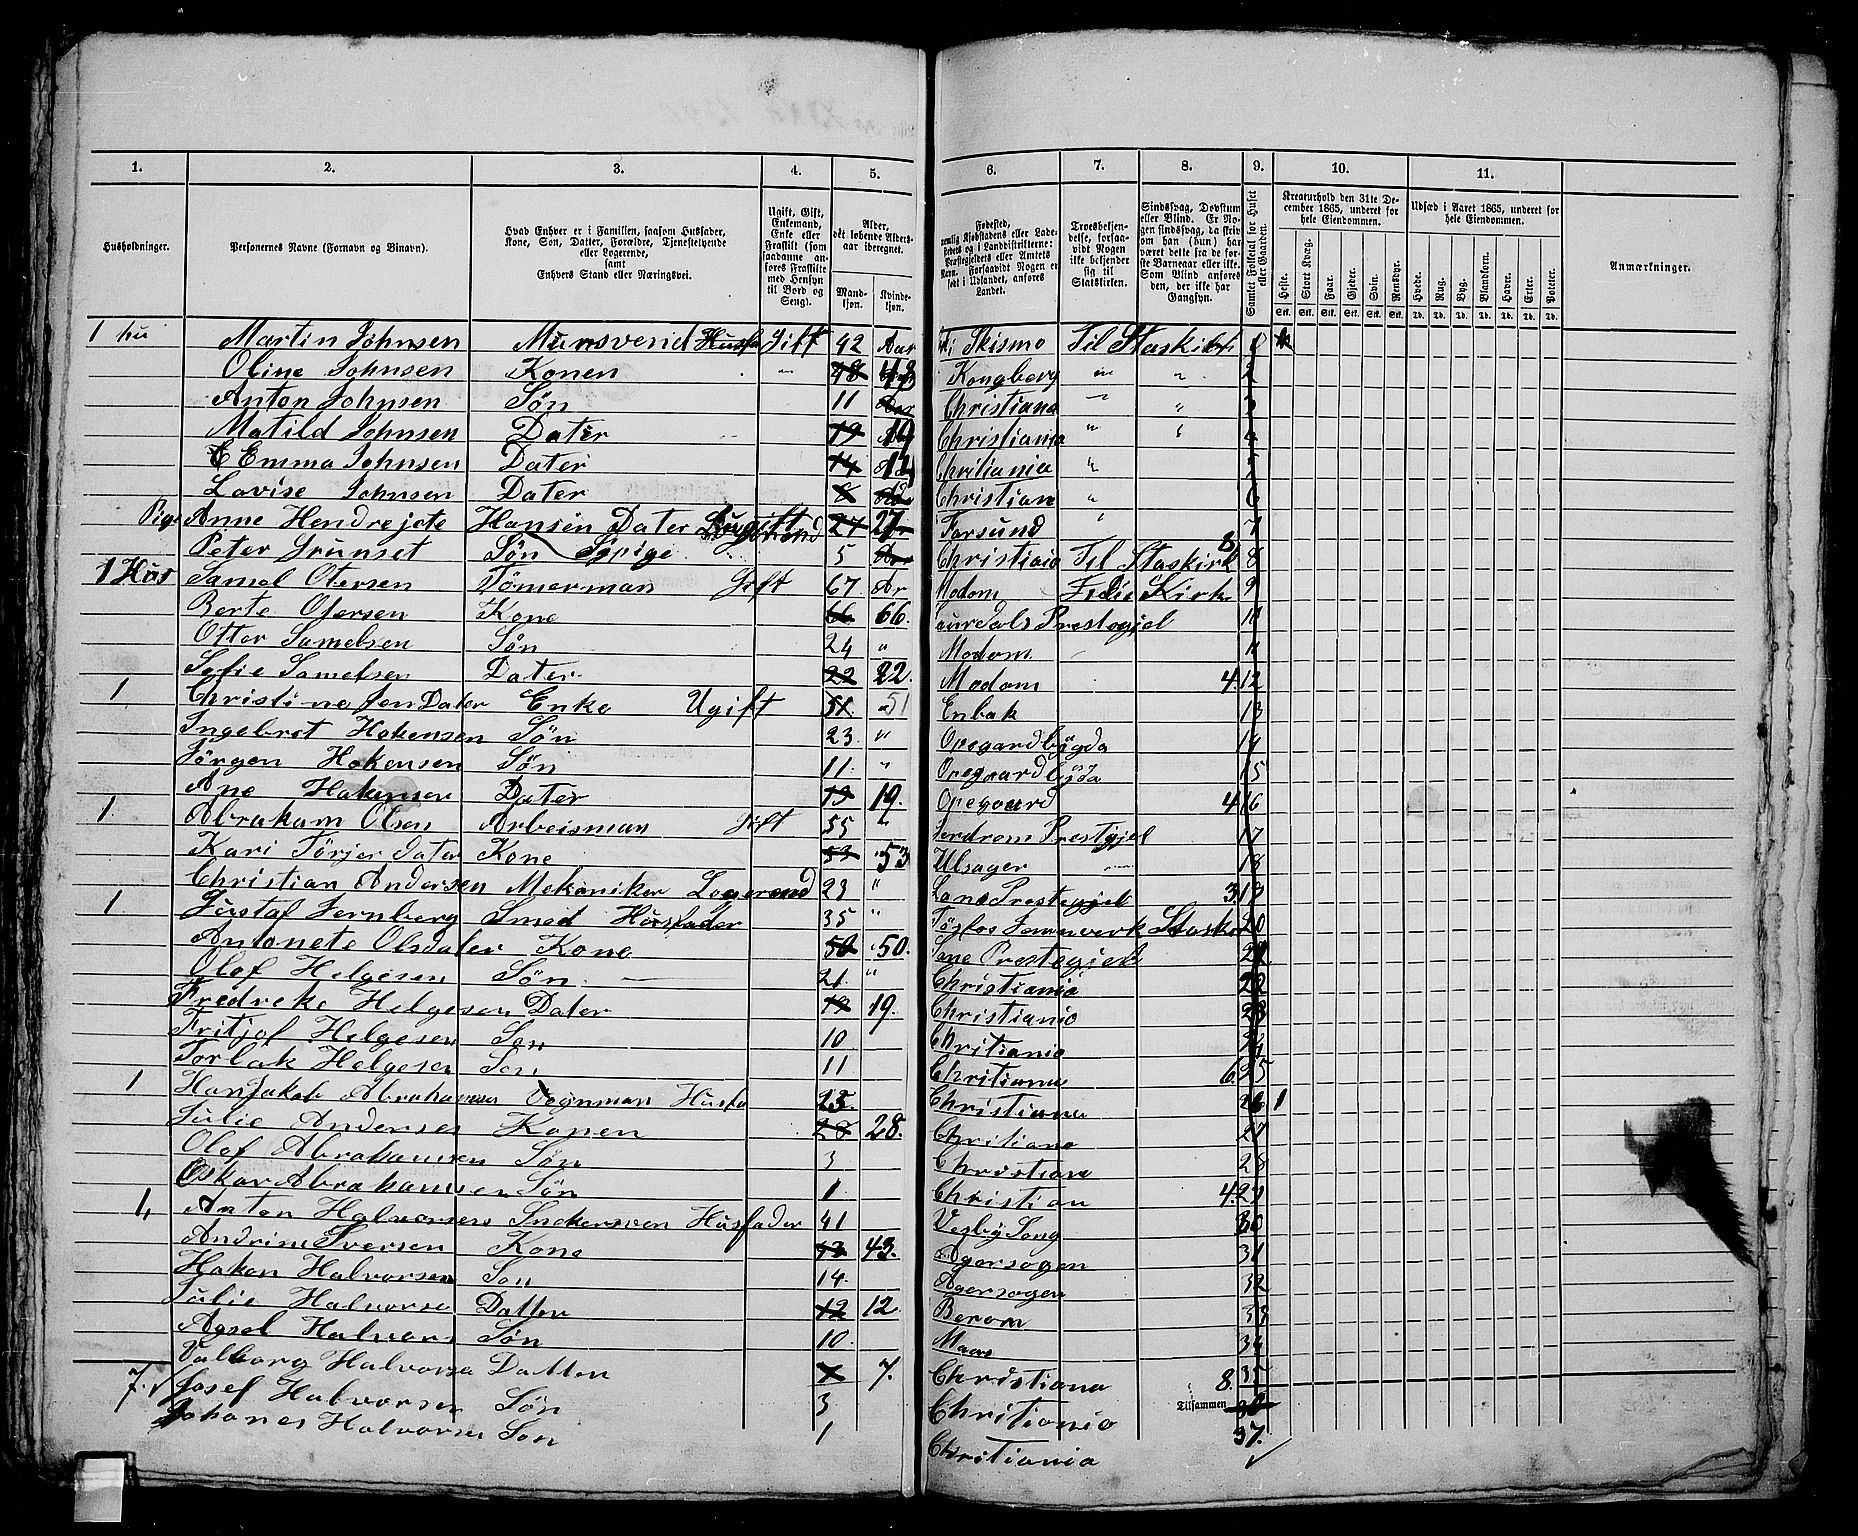 1. 2. 3. 4. 5. 6. 7. 8. 9. 10. 11.
Husholdninger.
Personernes Navne (Fornavn og Binavn).
Hvad Enhver er i Familien, saasom Husfader, Kone, Søn, Datter, Forældre, Tjenestetyende eller Logerende, samt Enhvers Stand eller Næringsvei.
Ugift, Gift, Enkemand, Enke eller Fraskilt (som saadanne anføres Fraskilte med Hensyn til Bord og Seng).
Alder, det løbende Aldersaar iberegnet.
Mandkjøn. Kvindekjøn.
Fødested, nemlig Kjøbstadens eller Ladestedets og i Landdistrikterne: Præstegjeldets eller Amtets Navn. Forsaavidt Nogen er født i Udlandet, anføres Landet.
Troesbekjendelse, forsaavidt Nogen ikke bekjender sig til Statskirken.
Sindssvag, Døvstum eller Blind. Er Nogen sindssvag, da skriv om han (hun) har været dette fra de første Barneaar eller ikke. Som Blind anføres den, der ikke har Gangsyn.
Samlet Folketal for Huset eller Gaarden.
Kreaturhold den 31te December 1865, underet for hele Eiendommen.
Heste. Stort Kvæg. Faar. Gjeder. Svin. Rensdyr.
Stk. Stk. Stk. Stk. Stk. Stk.
Udsæd i Aaret 1865, underet for hele Eiendommen.
Hvede. Rug. Byg. Blandkorn. Havre. Erter. Poteter.
Td. Td. Td. Td. Td. Td. Td.
Anmærkninger.
1 hu Martin Johnsen Mursvend Husfa Gift 42 Aar Skismo Til Staskirk 1
Oline Johnsen Konen 48 48 Kongberg 2
Anton Johnsen Søn 11 Aar Christiana " 3
Matild Johnsen Dater 19 19 Christiania 4
Emma Johnsen Dater 14 14 Chritiania 5
Lovise Johnsen Dater 8 Christian 6
Pige Anne Hendrejete Hansen Dater Ugift 27 27 Farsund 7
Peter Grunset Søn 5 Christiania Til Staskirk 8 8
1 Hus Samel Otersen Tømerman Gift 67 Ar Modom Kirk 9
Berte Otersen Kone 66 66. Prestegjel 10
Otter Samelsen Søn 24 " Modom 11
Sofie Samelsen Dater 22 22. Modom 4. 12
1 Christine Jen Dater Enke Ugift 51 51 Enbak 13
Ingebret Hakensen Søn 23. " Opegardbygda 14
Jörgen Hakensen Søn 11. " Opegaardbygda 15
Ane Hakensen Dater 19 19. Opegaard 4 16
1. Abraham Olsen Arbeisman Gift 55 " Prestgjel 17
Kari Törjer Dater Kone 53 53 Ulsager 18
Christian Andersen Mekaniker Logerend 29 " Land Prestegjel 3. 19
1 Gustaf Jernberg Smed Husfader 35 " Staskir 20
Antonete Olsdater Kone 50 50. Prestegjeld 21
Olof Helgesen Søn 21. " Christiania 22
Fredreke Helgesen Dater 19 19. Christianio 23
Fritjof Helgesen Son 10 Chritianio 24
Torlak Helgesen Son 11 Chritiana 6. 25
1 Hans Jakob Abrahamsen Vognman Husfa 25. Christiana 26 1
Julie Andersen Konen 28 28. Chritiano 27
Olof Abrahamsen Søn 3 Christiana 28
Oskar Abrahamsen Søn 1 Christian 4. 29
1, Anton Halvorsen Snekersven Husfader 41 Vegby Song 30
Andrine Iversen Kone 43 43. Agersogen 31
Hakon Halvorsen Son 14. Agersogen 32
Julie Halvorse Datter 12 12 Berom 33
Agsel Halvors Søn 10. 34
Valborg Halvorse Datter 7 7. Christiana 8. 35
7. Josef Halvorsen Søn 3 Chritianio Tilsammen 36
Johanes Halvorse Son 1 Chritiania 37.